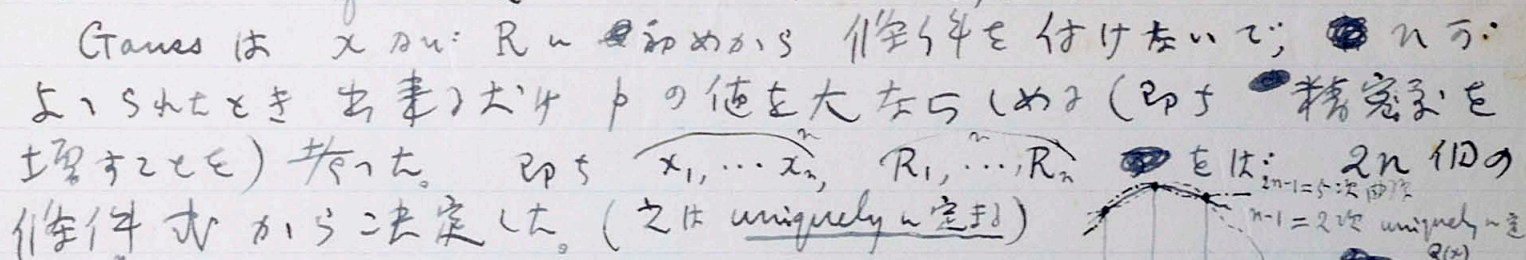 Gauss は x 及び R に 初めから 條件を 付けないで, n が
与へられたとき 出来るだけ p の値を大ならしめる (即ち 精密度を
増すことを) 考へた。 即ち x₁, … xₙ, R₁, …, Rₙ をば 2n 個の
條件式から決定した。 (之は uniquely に定まる)
2n-1=5次曲線
n-1=2次 uniquely に定
Q(x)